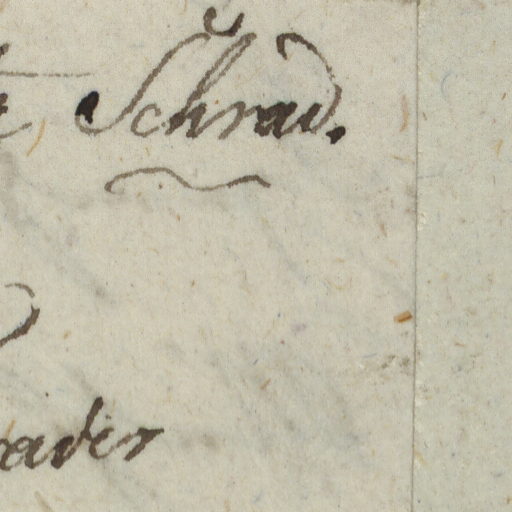 Schrad.
rader